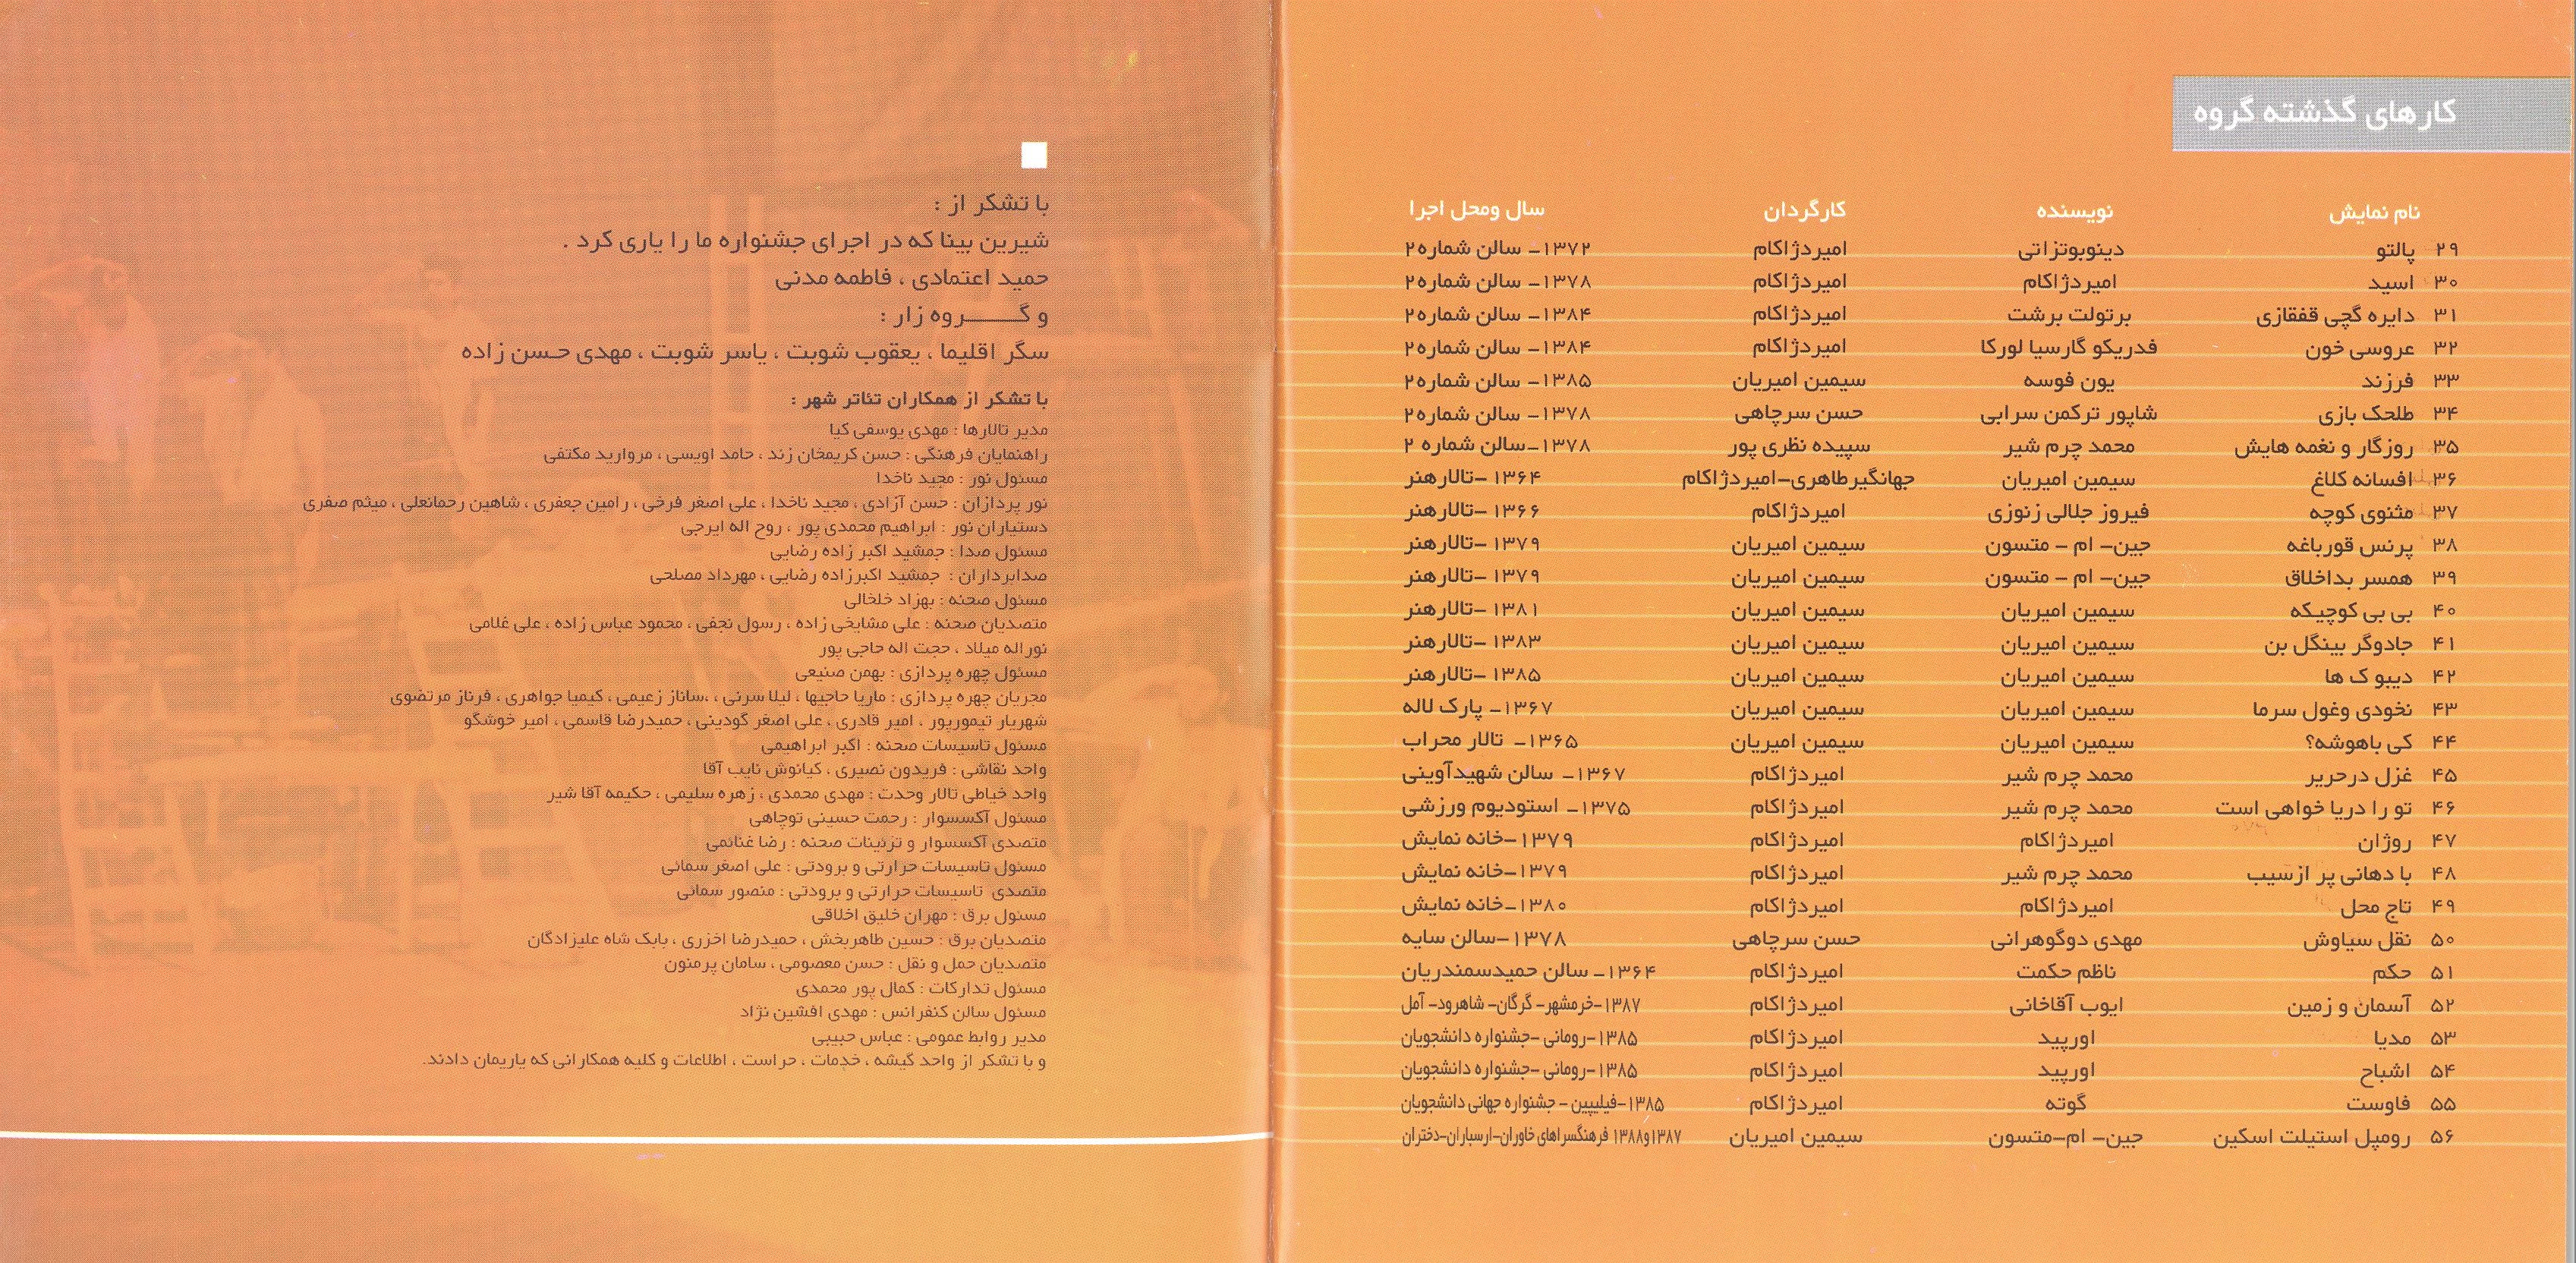 کارهای گذشته گروه
نام نمایش نویسنده کارگردان سال ومحل اجرا
۲۹ پالتو دینوبوتزاتی امیردژاکام ۱۳۷۲- سالن شماره۲
۳۰ اسید امیردژاکام امیردژاکام ۱۳۷۸- سالن شماره۲
۳۱ دایره گچی قفقازی برتولت برشت امیردژاکام ۱۳۸۴- سالن شماره۲
۳۲ عروسی خون فدریکو گارسیا لورکا امیردژاکام ۱۳۸۴- سالن شماره۲
۳۳ فرزند یون فوسه سیمین امیریان ۱۳۸۵- سالن شماره۲
۳۴ طلحک بازی شاپور ترکمن سرابی حسن سرچاهی ۱۳۷۸- سالن شماره۲
۳۵ روزگار و نغمه هایش محمد چرم شیر سپیده نظری پور ۱۳۷۸-سالن شماره ۲
۳۶ افسانه کلاغ سیمین امیریان جهانگیرطاهری-امیردژاکام ۱۳۶۴ -تالارهنر
۳۷ مثنوی کوچه فیروز جلالی زنوزی امیردژاکام ۱۳۶۶ -تالارهنر
۳۸ پرنس قورباغه جین- ام - متسون سیمین امیریان ۱۳۷۹ -تالارهنر
۳۹ همسر بداخلاق جین- ام - متسون سیمین امیریان ۱۳۷۹ -تالارهنر
۴۰ بی بی کوچیکه سیمین امیریان سیمین امیریان ۱۳۸۱ -تالارهنر
۴۱ جادوگر بینگل بن سیمین امیریان سیمین امیریان ۱۳۸۳ -تالارهنر
۴۲ دیبو ک ها سیمین امیریان سیمین امیریان ۱۳۸۵ -تالارهنر
۴۳ نخودی وغول سرما سیمین امیریان سیمین امیریان ۱۳۶۷- پارک لاله
۴۴ کی باهوشه؟ سیمین امیریان سیمین امیریان ۱۳۶۵- تالار محراب
۴۵ غزل درحریر محمد چرم شیر امیردژاکام ۱۳۶۷- سالن شهیدآوینی
۴۶ تو را دریا خواهی است محمد چرم شیر امیردژاکام ۱۳۷۵- استودیوم ورزشی
۴۷ روژان امیردژاکام امیردژاکام ۱۳۷۹-خانه نمایش
۴۸ با دهانی پر ازسیب محمد چرم شیر امیردژاکام ۱۳۷۹-خانه نمایش
۴۹ تاج محل امیردژاکام امیردژاکام ۱۳۸۰-خانه نمایش
۵۰ نقل سیاوش مهدی دوگوهرانی حسن سرچاهی ۱۳۷۸-سالن سایه
۵۱ حکم ناظم حکمت امیردژاکام ۱۳۶۴- سالن حمیدسمندریان
۵۲ آسمان و زمین ایوب آقاخانی امیردژاکام ۱۳۸۷-خرمشهر- گرگان- شاهرود- آمل
۵۳ مدیا اورپید امیردژاکام ۱۳۸۵-رومانی -جشنواره دانشجویان
۵۴ اشباح اورپید امیردژاکام ۱۳۸۵-رومانی -جشنواره دانشجویان
۵۵ فاوست گوته امیردژاکام ۱۳۸۵-فیلیپین - جشنواره جهانی دانشجویان
۵۶ رومپل استیلت اسکین جین- ام-متسون سیمین امیریان ۱۳۸۷و۱۳۸۸ فرهنگسراهای خاوران-ارسباران-دختران
با تشکر از :
شیرین بینا که در اجرای جشنواره ما را یاری کرد .
حمید اعتمادی ، فاطمه مدنی
و گـــــــروه زار :
سگر اقلیما ، یعقوب شوبت ، یاسر شوبت ، مهدی حسن زاده
با تشکر از همکاران تئاتر شهر :
مدیر تالارها : مهدی یوسفی کیا
راهنمایان فرهنگی : حسن کریمخان زند ، حامد اویسی ، مروارید مکتفی
مسئول نور : مجید ناخدا
نور پردازان : حسن آزادی ، مجید ناخدا ، علی اصغر فرخی ، رامین جعفری ، شاهین رحمانعلی ، میثم صفری
دستیاران نور : ابراهیم محمدی پور ، روح اله ایرجی
مسئول صدا : جمشید اکبر زاده رضایی
صدابرداران : جمشید اکبرزاده رضایی ، مهرداد مصلحی
مسئول صحنه : بهزاد خلخالی
متصدیان صحنه : علی مشایخی زاده ، رسول نجفی ، محمود عباس زاده ، علی غلامی
نوراله میلاد ، حجت اله حاجی پور
مسئول چهره پردازی : بهمن صنیعی
مجریان چهره پردازی : ماریا حاجیها ، لیلا سرنی ، ،ساناز زعیمی ، کیمیا جواهری ، فرناز مرتضوی
شهریار تیمورپور ، امیر قادری ، علی اصغر گودینی ، حمیدرضا قاسمی ، امیر خوشگو
مسئول تاسیسات صحنه : اکبر ابراهیمی
واحد نقاشی : فریدون نصیری ، کیانوش نایب آقا
واحد خیاطی تالار وحدت : مهدی محمدی ، زهره سلیمی ، حکیمه آقا شیر
مسئول آکسسوار : رحمت حسینی توچاهی
متصدی آکسسوار و تزئینات صحنه : رضا غنائمی
مسئول تاسیسات حرارتی و برودتی : علی اصغر سمائی
متصدی تاسیسات حرارتی و برودتی : منصور سمائی
مسئول برق : مهران خلیق اخلاقی
متصدیان برق : حسین طاهربخش ، حمیدرضا اخزری ، بابک شاه علیزادگان
متصدیان حمل و نقل : حسن معصومی ، سامان پرمنون
مسئول تدارکات : کمال پور محمدی
مسئول سالن کنفرانس : مهدی افشین نژاد
مدیر روابط عمومی : عباس حبیبی
و با تشکر از واحد گیشه ، خدمات ، حراست ، اطلاعات و کلیه همکارانی که یاریمان دادند.